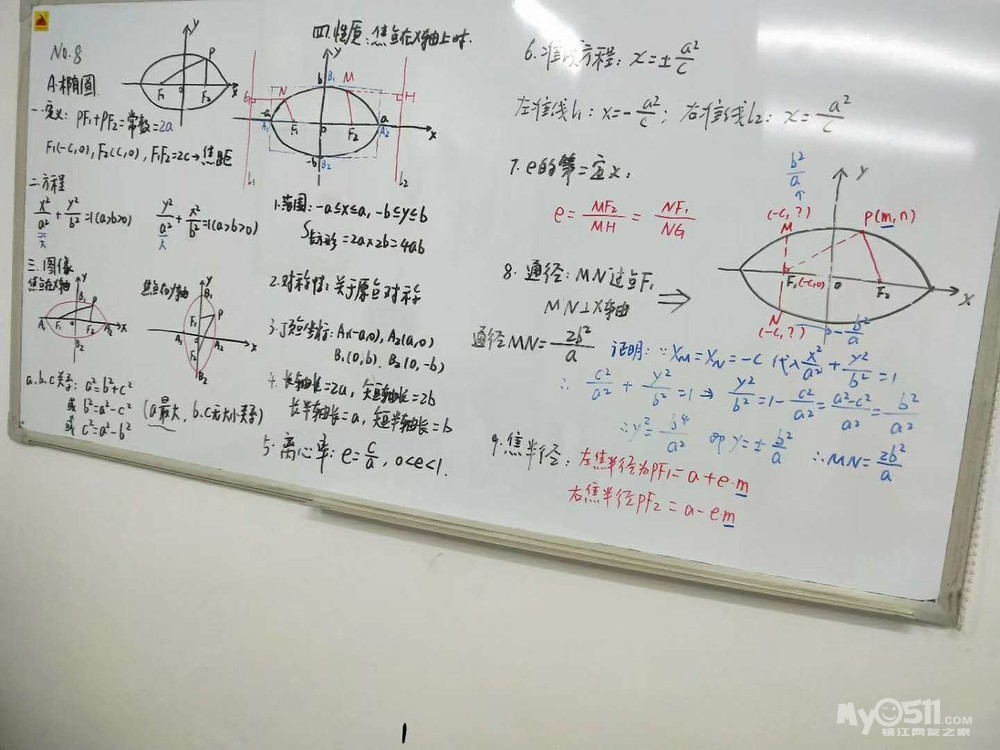 No.8
A.椭圆
一.定义: PF₁+PF₂=常数=2a
F₁(-c,0), F₂(c,0), F₁F₂=2c→焦距
二.方程
x²/a²+y²/b²=1(a>b>0) y²/a²+x²/b²=1(a>b>0)
三.图像
焦点在X轴 焦点在y轴
a.b.c关系: a²=b²+c²
或 b²=a²-c² (a最大, b.c无大小关系)
或 c²=a²-b²
四.性质: 焦点在X轴上时.
1.范围: -a≤x≤a, -b≤y≤b
S矩形=2a×2b=4ab
2.对称性: 关于原点对称
3.顶点坐标: A₁(-a,0), A₂(a,0)
B₁(0,b), B₂(0,-b)
4.长轴长=2a, 短轴长=2b
长半轴长=a, 短半轴长=b
5.离心率: e=c/a, 0<e<1.
6.准线方程: x=±a²/c
左准线l₁: x=-a²/c; 右准线l₂: x=a²/c
7.e的第二定义:
e=MF₂/MH=NF₁/NG
8.通径: MN过点F₁
MN⊥X轴 ⇒
通径MN=2b²/a
证明: ∵XM=XN=-c 代入x²/a²+y²/b²=1
∴c²/a²+y²/b²=1⇒y²/b²=1-c²/a²=a²-c²/a²=b²/a²
∴y²=b⁴/a² 即y=±b²/a ∴MN=2b²/a
9.焦半径: 左焦半径为PF₁=a+e·m
右焦半径PF₂=a-e·m
y
P
F₁ 0 F₂ x
y
b B₁ M
G N H
-a a
A₁ F₁ 0 F₂ A₂ x
-b B₂
L₁ L₂
y
B₁ P
A₁ F₁ 0 F₂ A₂ x
B₂
y
B₁
F₁ P
A₁ 0 A₂ x
F₂
B₂
b²/a
y
(-c,?) P(m,n)
M
F₁(-c,0) 0 F₂ x
N
(-c,?) -b²/a
My0511.COM
镇江网友之家